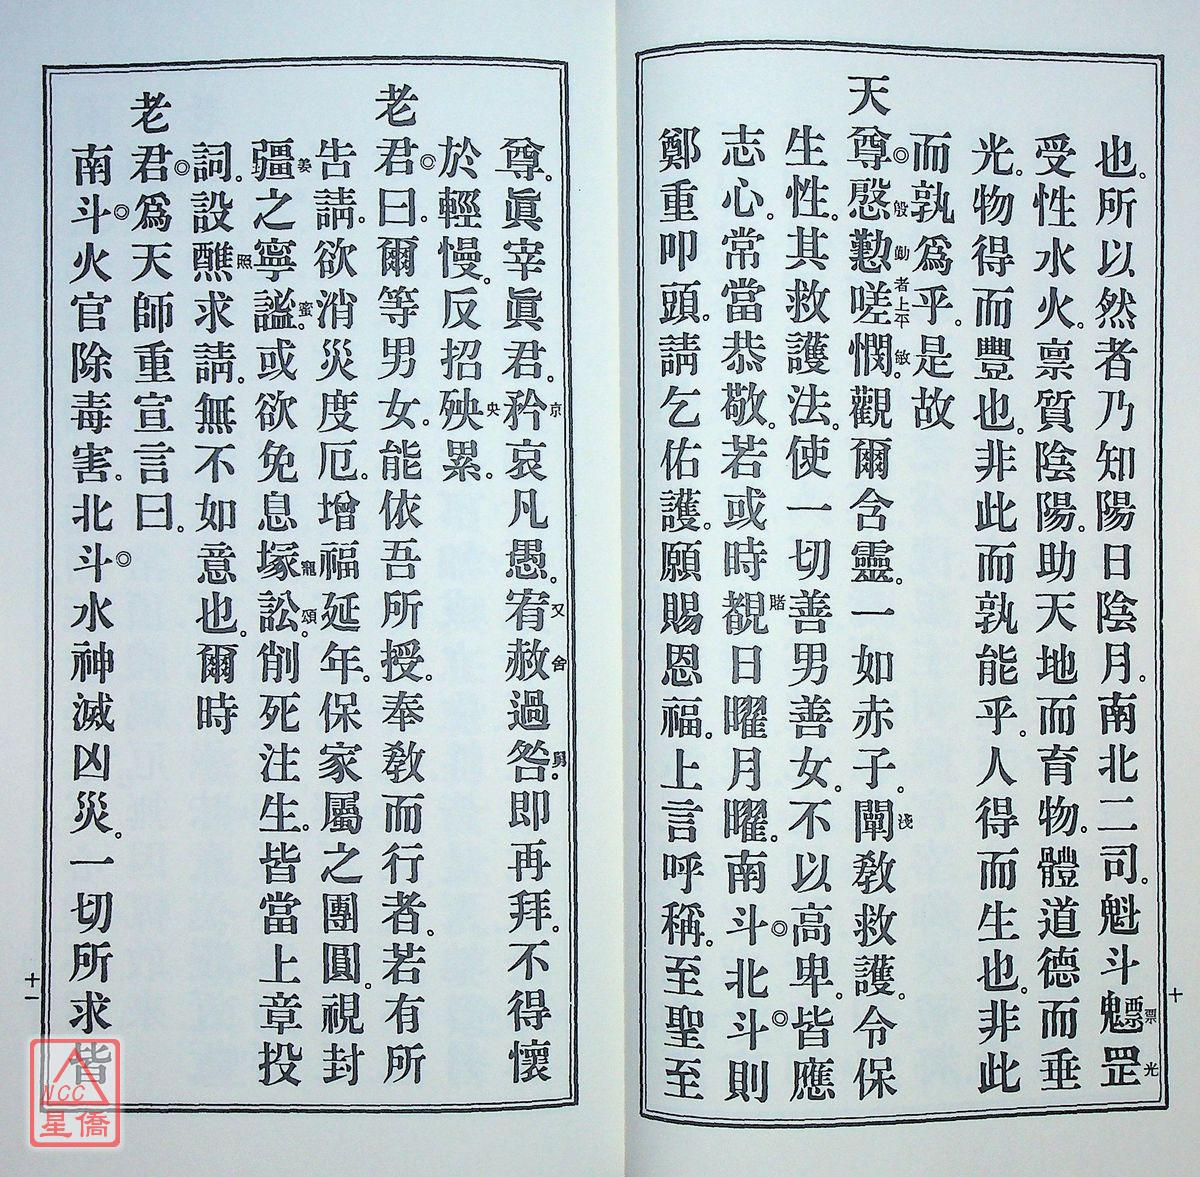 也。所以然者乃知陽日陰月。南北二司。魁斗魒罡
受性水火。禀質陰陽。助天地而育物。體道德而垂
光。物得而豐也。非此而孰能乎。人得而生也。非此
而孰爲乎。是故
天尊慇懃嗟憫。觀爾含靈。一如赤子。闡教救護。令保
生性。其救護法。使一切善男善女。不以高卑。皆應
志心。常當恭敬。若或時覩日曜月曜。南斗北斗則
鄭重叩頭。請乞佑護。願賜恩福。上言呼稱。至聖至
十
尊。眞宰眞君。矜哀凡愚。宥赦過咎。即再拜。不得懷
於輕慢。反招殃累。
老君曰。爾等男女。能依吾所授。奉教而行者。若有所
告請。欲消災度厄。增福延年。保家屬之團圓。視封
疆之寧謐。或欲免息塚訟。削死注生。皆當上章投
詞。設醮求請。無不如意也。爾時
老君爲天師重宣言曰。
南斗火官除毒害。北斗水神滅凶災。一切所求皆
十一
NCC
星僑